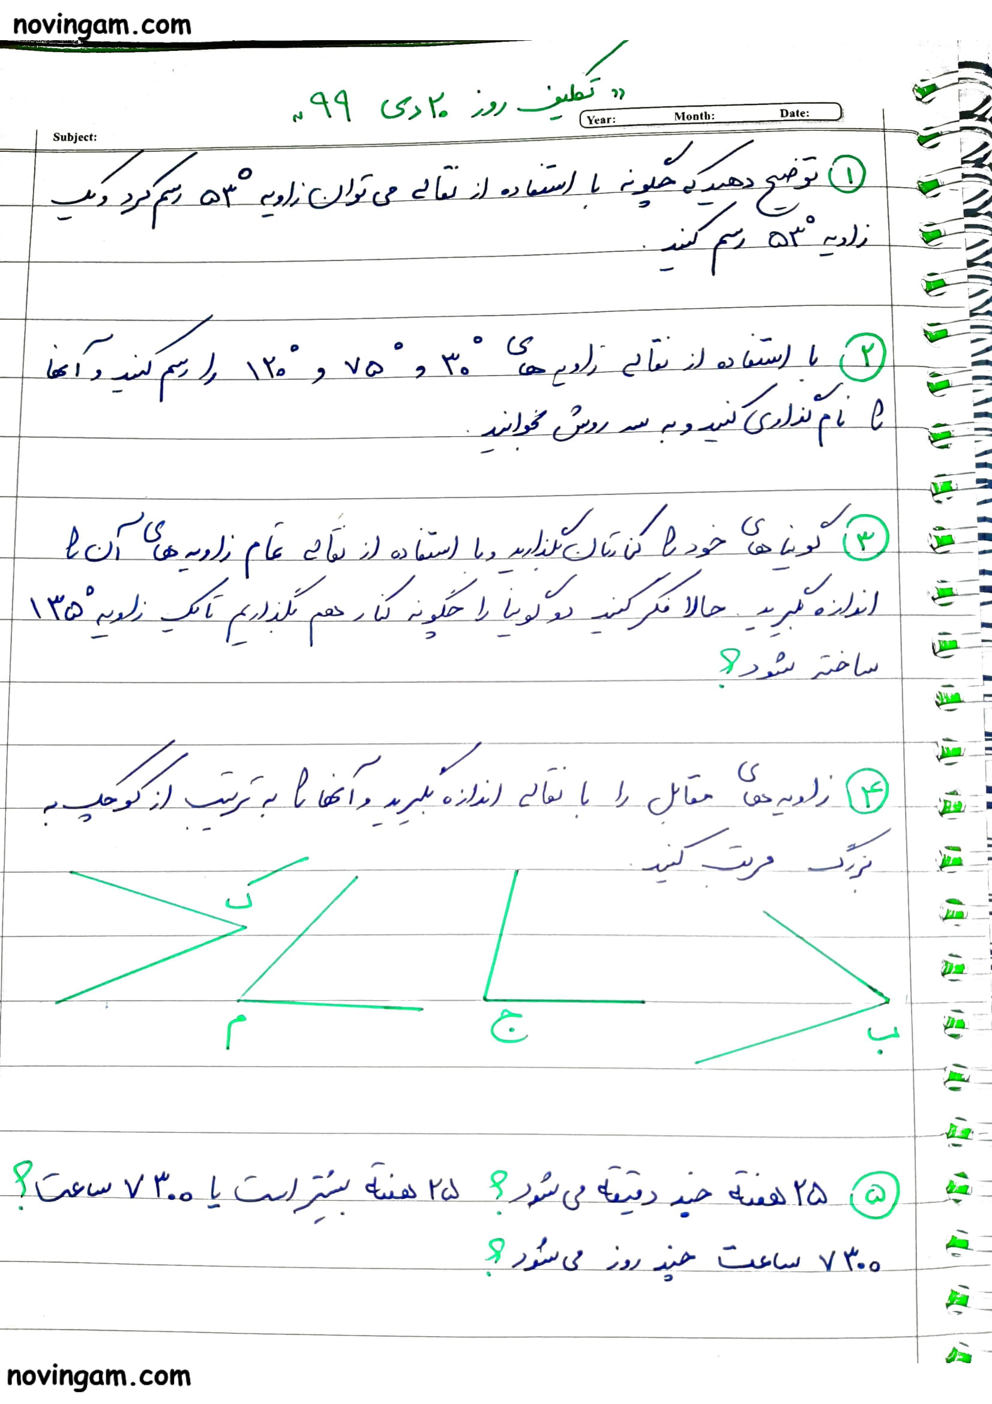 novingam.com
« تکلیف روز ۲۰ دی ۹۹ »
Year: Month: Date:
Subject:
۱ توضیح دهید که چگونه با استفاده از نقاله می‌توان زاویه ۵۳° رسم کرد و یک
زاویه ۵۳° رسم کنید.
۲ با استفاده از نقاله زاویه‌های ۳۰° و ۷۵° و ۱۲۰° را رسم کنید و آنها
را نام گذاری کنید و به سه روش بخوانید.
۳ گونیاهای خود را کنارتان بگذارید و با استفاده از نقاله تمام زاویه‌های آن را
اندازه بگیرید. حالا فکر کنید دو گونیا را چگونه کنار هم بگذاریم تا یک زاویه ۱۳۵°
ساخته شود؟
۴ زاویه‌های مقابل را با نقاله اندازه بگیرید و آنها را به ترتیب از کوچک به
بزرگ مرتب کنید.
ک
م
ج
ب
۵ ۲۵ هفته چند دقیقه می‌شود؟ ۲۵ هفته بیشتر است یا ۷۳۰۰ ساعت؟
۷۳۰۰ ساعت چند روز می‌شود؟
novingam.com